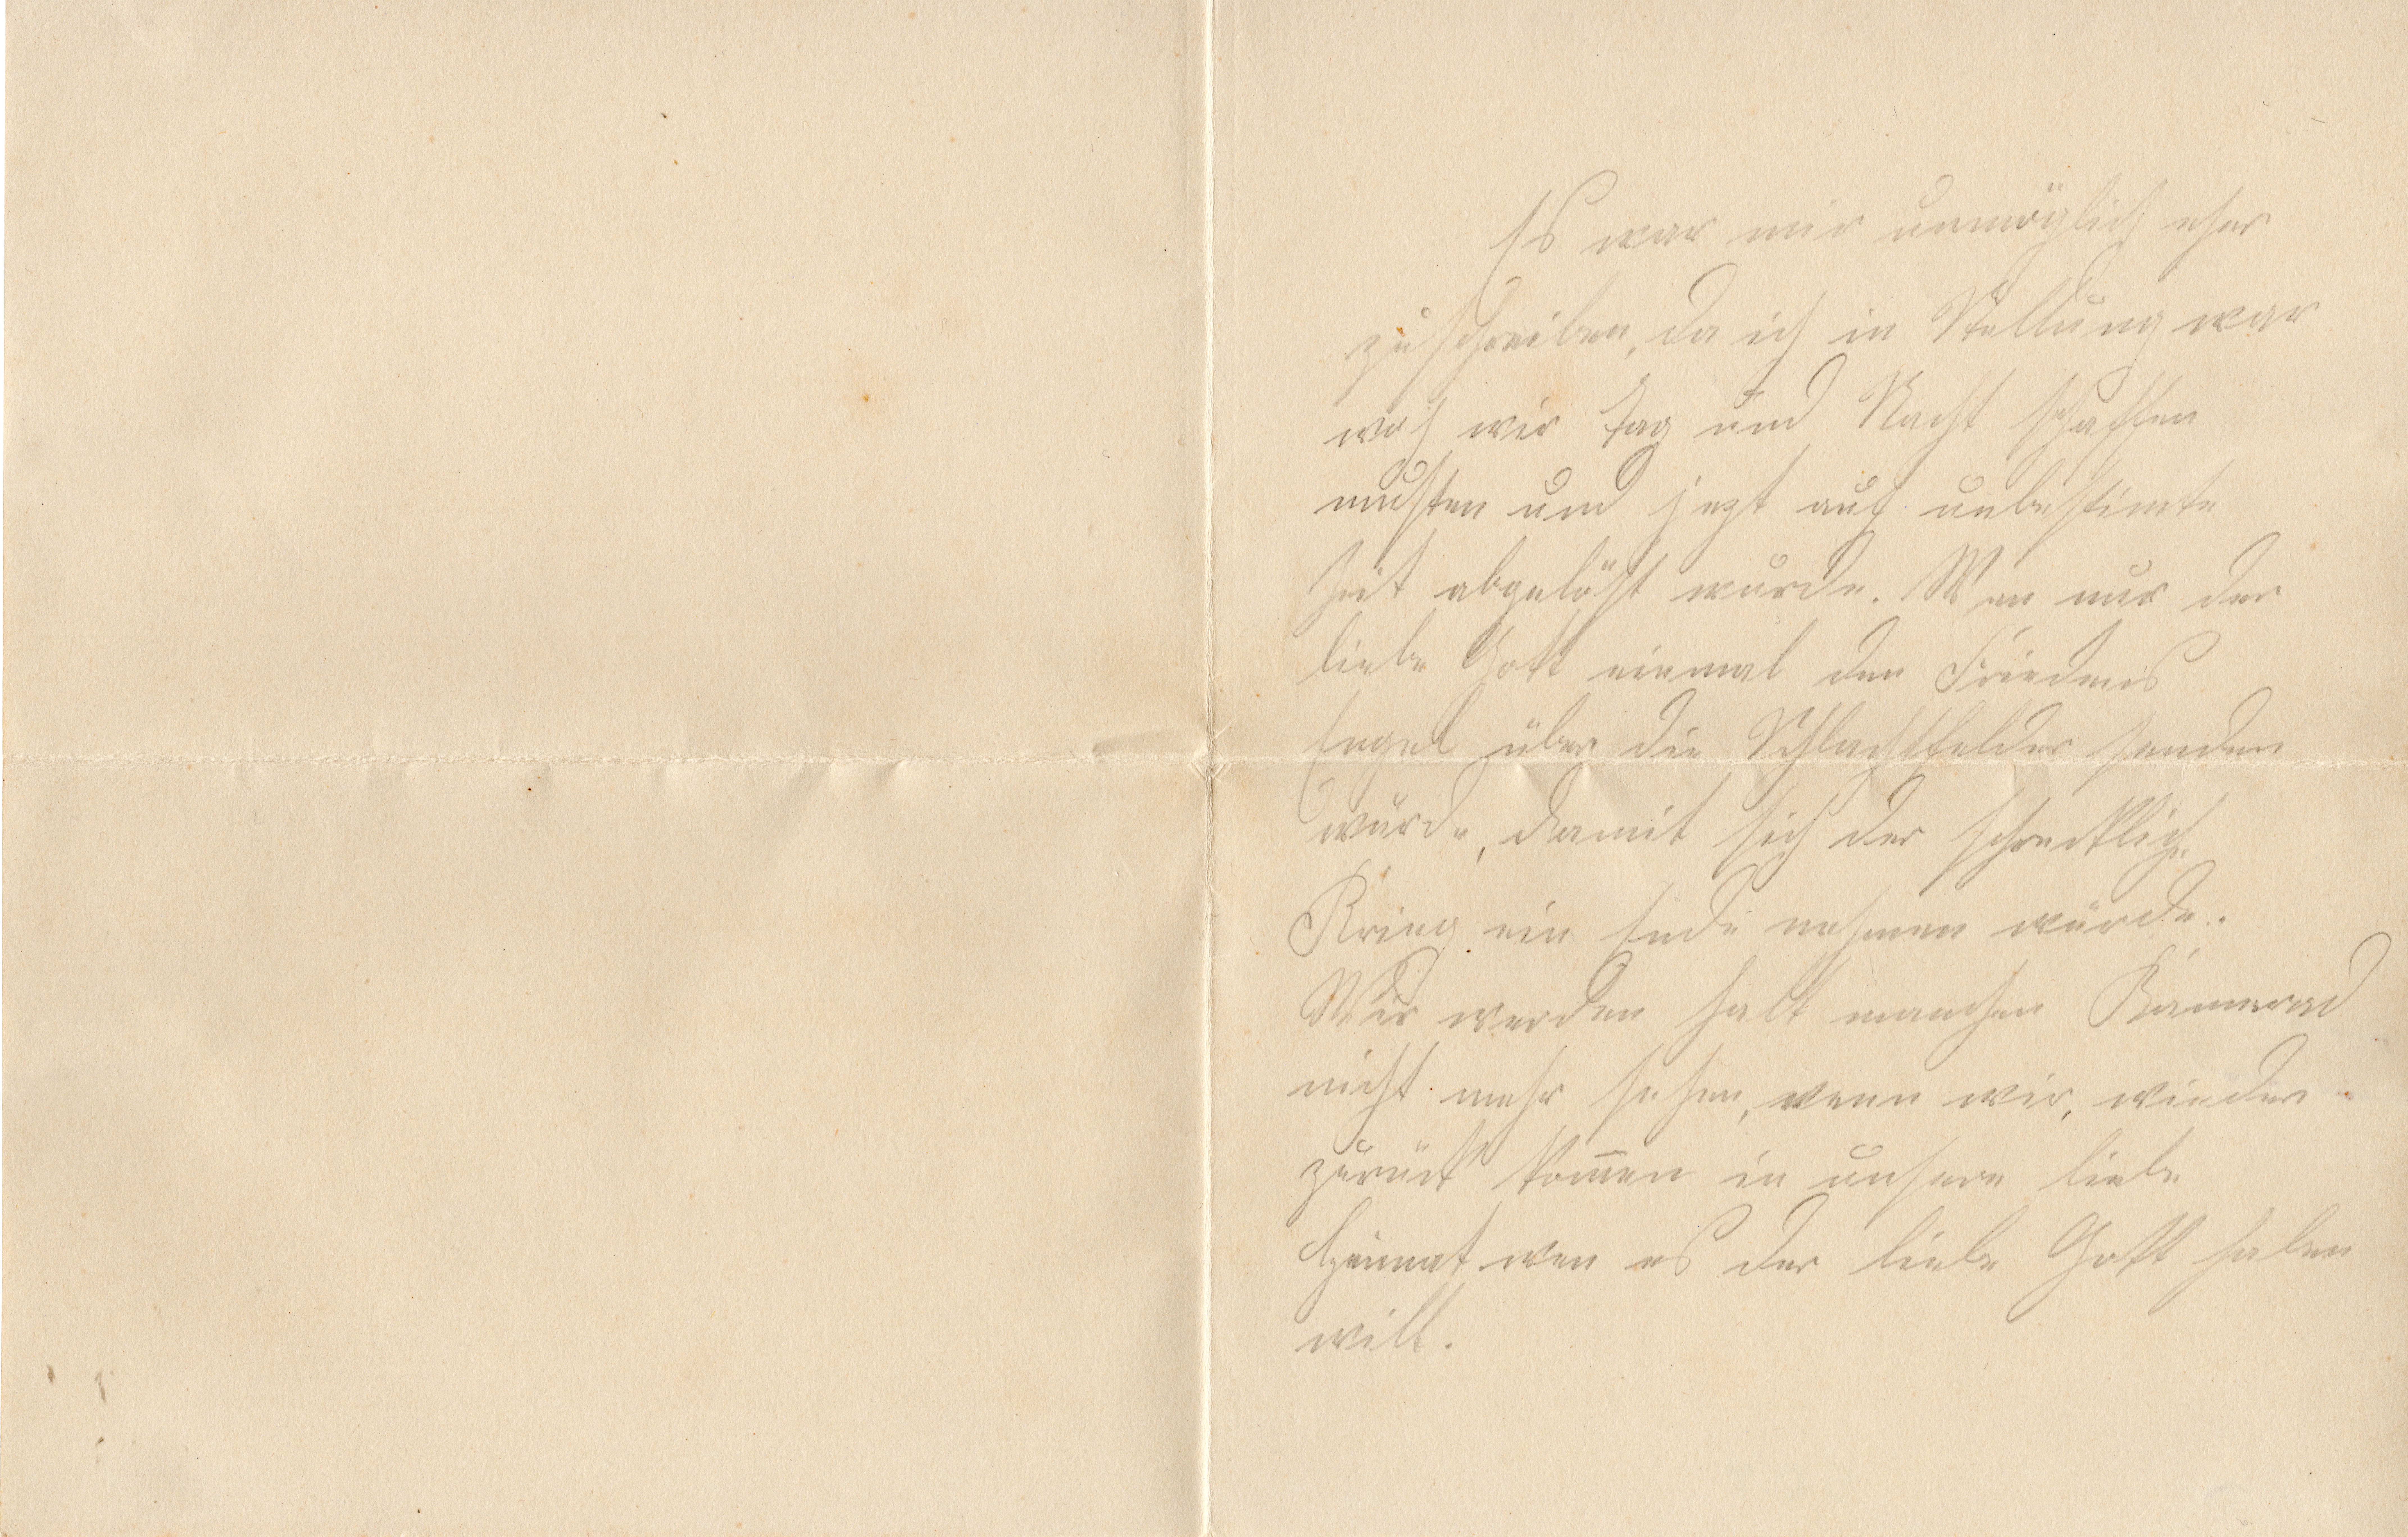 Es war mir unmöglich eher
zu schreiben, da ich in Stellung war
woh wir Tag und Nacht schaffen
mußten und jezt auf unbestimte
Zeit abgelößt wurde. Wen nur der
liebe Gott einmal den Friedens
Engel über die Schlachtfelder senden
würde, damit sich der schreckliche
Krieg ein Ende nehmen würde.
Wir werden halt manchen Kamerad
nicht mehr sehen, wenn wir, wieder
zurück kom̅en in unsere liebe
Heimat wen es der liebe Gott haben
will.